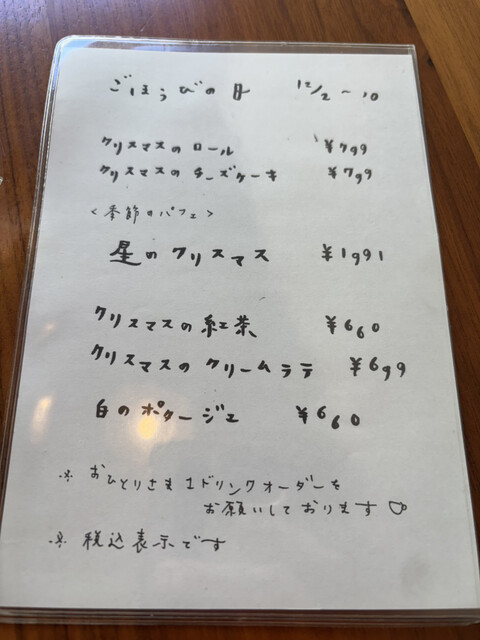 ごほうびの日 12/2〜10
クリスマスのロール ¥799
クリスマスのチーズケーキ ¥799
<季節のパフェ>
星のクリスマス ¥1991
クリスマスの紅茶 ¥660
クリスマスのクリームラテ ¥699
白のポタージュ ¥660
※ おひとりさま1ドリンクオーダーを
お願いしております
※ 税込表示です